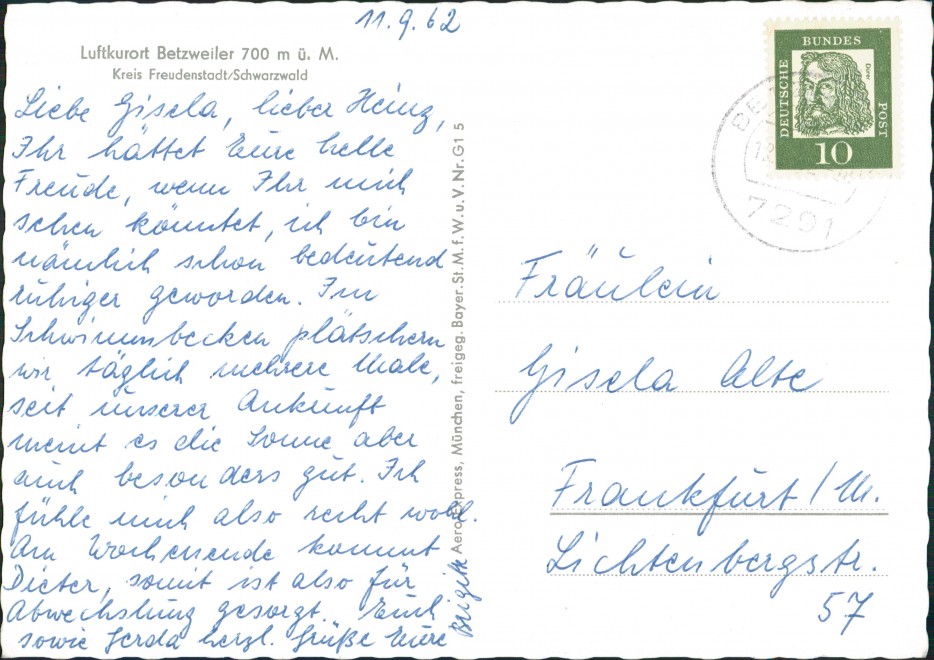 11.9.62
Luftkurort Betzweiler 700 m ü. M.
Kreis Freudenstadt/Schwarzwald
Liebe Gisela, lieber Heinz,
Ihr hättet Eure helle
Freude, wenn Ihr mich
sehen könntet, ich bin
nämlich schon bedeutend
ruhiger geworden. Im
Schwimmbecken plätschern
wir täglich mehrere Male,
seit unserer Ankunft
meint es die Sonne aber
auch besonders gut. Ich
fühle mich also recht wohl.
Am Wochenende kommt
Dieter, somit ist also für
Abwechslung gesorgt. Euch
sowie Gerda herzl. Grüße Eure
Brigitte
Aero-Express, München, freigeg. Bayer. St. M. f. W. u. V. Nr. G 1 5
DEUTSCHE
BUNDES
POST
Dürer
10
7291
Fräulein
Gisela Alte
Frankfurt / M.
Lichtenbergstr.
57